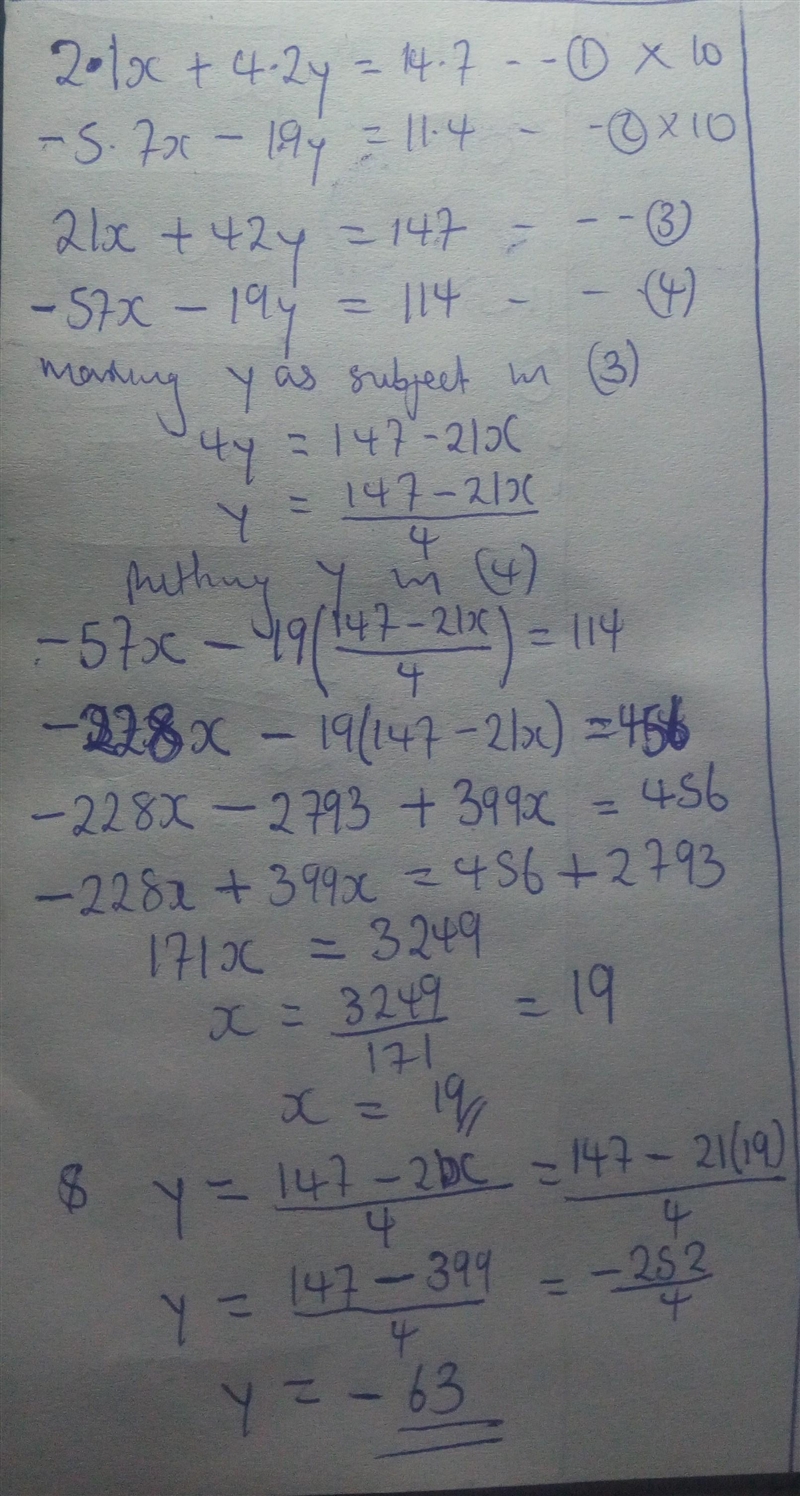 2.1x + 4.2y = 14.7 -- ① × 10
-5.7x - 1.9y = 11.4 - - ② × 10
21x + 42y = 147 - -- ③
-57x - 19y = 114 - - (4)
making y as subject in (3)
4y = 147 - 21x
y = (147 - 21x)/4
putting y in (4)
-57x - 19((147 - 21x)/4) = 114
-228x - 19(147 - 21x) = 456
-228x - 2793 + 399x = 456
-228x + 399x = 456 + 2793
171x = 3249
x = 3249/171 = 19
x = 19
& y = (147 - 21x)/4 = (147 - 21(19))/4
y = (147 - 399)/4 = -252/4
y = -63